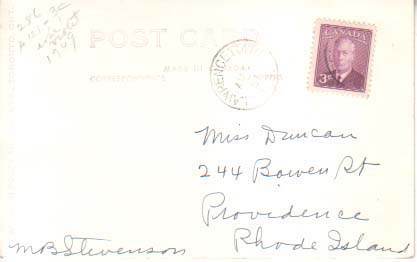 28¢
1949
POST CARD
CORRESPONDENCE
CANADA
3
Miss Duncan
244 Bowen St
Providence
Rhode Island
M B Stevenson